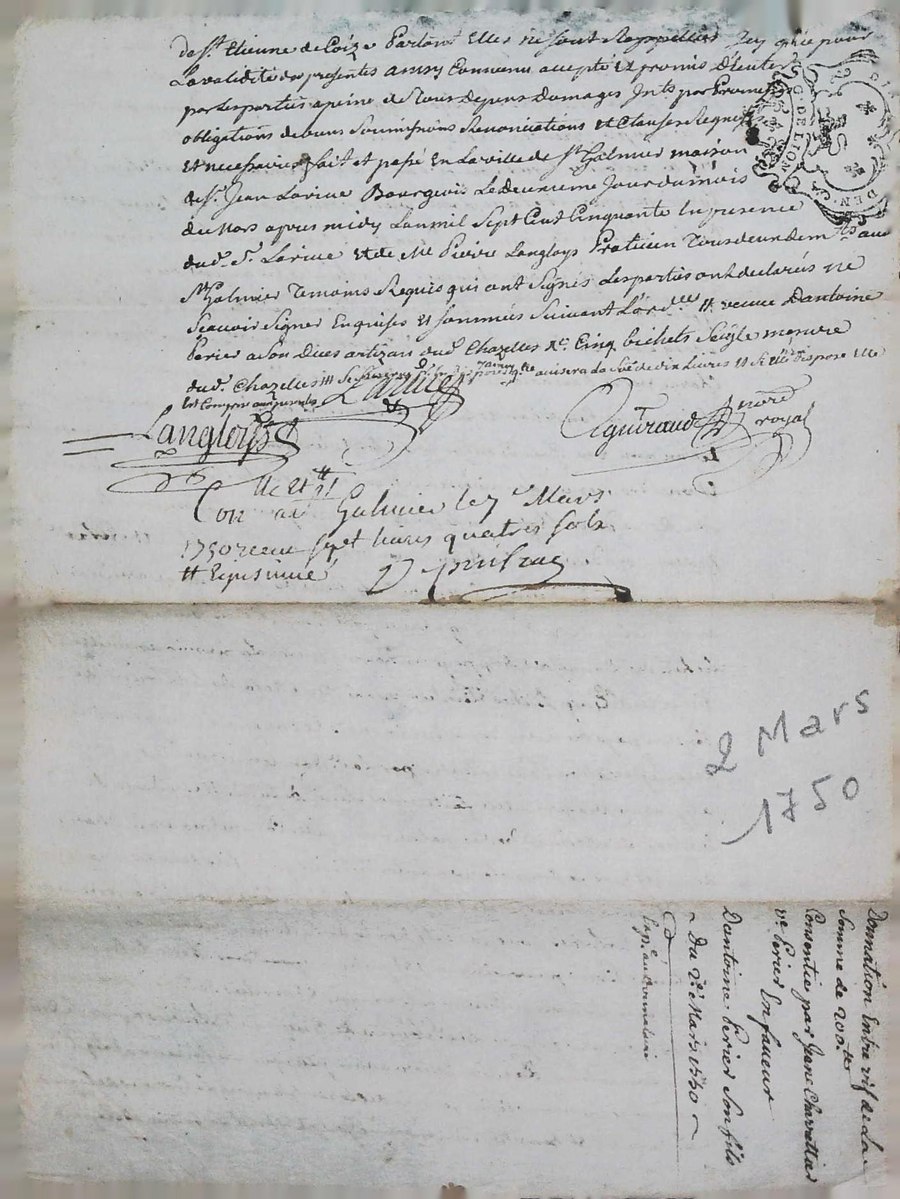 de St. Etienne de Coize Partant Elles ne sont Rappellées Icy que pour
La validité des presentes ainsy Convenu accepté et promis D'Executer
par les parties a peine de tous Depens Domages Intts. par Promesses
obligations de biens Soumissions Renonciations et Clauses Requises
et necessaires fait et passé En la ville de St Galmier maison
de Sr. Jean Larive Bourgeois Le Deuxieme Jour du mois
de Mars apres midy Lan mil Sept Cent Cinquante En presence
dud. Sr. Larivé et de Me Pierre Langloys Praticien Tous deux dem.ts aud
St Galmier Temoins Requis qui ont Signés Les parties ont declarés ne
Scavoir Signer Enquises et Sommées Suivant L'ord.ce veuve D'antoine
Perier a Son Deces artizan dud. Chazelles Cinq bichets Seigle mesure
dud. Chazelles
est Comprise aux presentes
Larive
Langloys
Aguiraud
Nore
royal
Con a St Galmier le 7e Mars
1750 receu sept livres quatres sols
2 Mars
1750
Donnation Entre vif de La
Somme de 200 tt
Consentie par Jeane Charrettier
ve. Perier En faveur
D'antoine Perier Son fils
Du 2e. Mars 1750
Exp.e au Donnataire
G. DE LION
DEN